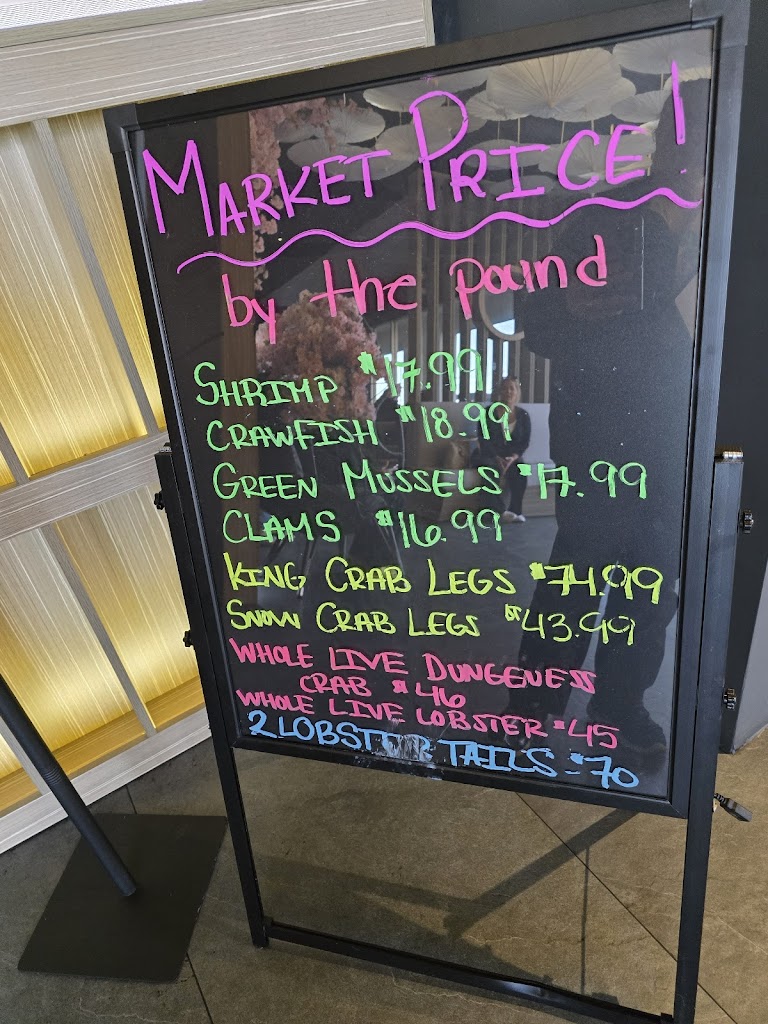 MARKET PRICE!
by the pound
SHRIMP $17.99
CRAWFISH $18.99
GREEN MUSSELS $17.99
CLAMS $16.99
KING CRAB LEGS $74.99
SNOW CRAB LEGS $43.99
WHOLE LIVE DUNGENESS
CRAB $46
WHOLE LIVE LOBSTER $45
2 LOBSTER TAILS - $70